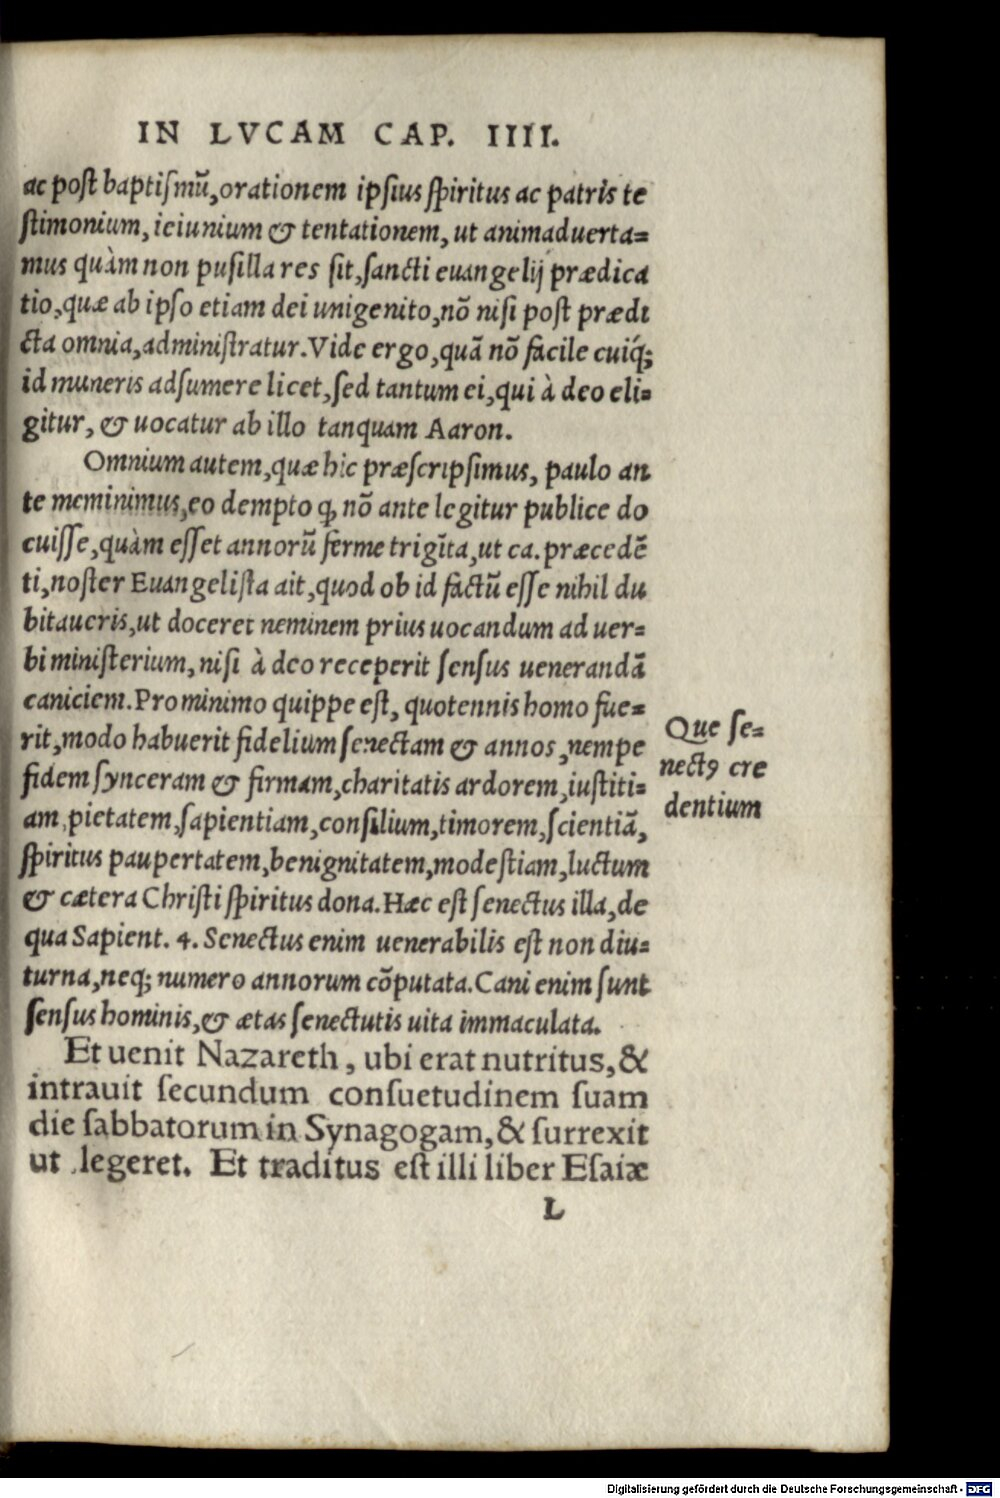 IN LVCAM CAP. IIII.
ac post baptismū, orationem ipsius spiritus ac patris te
stimonium, ieiunium & tentationem, ut animaduerta=
mus quàm non pusilla res sit, sancti euangelij prædica
tio, quæ ab ipso etiam dei unigenito, nō nisi post prædi
cta omnia, administratur. Vide ergo, quā nō facile cuiq́;
id muneris adsumere licet, sed tantum ei, qui à deo eli=
gitur, & uocatur ab illo tanquam Aaron.
Omnium autem, quæ hic præscripsimus, paulo an
te meminimus, eo dempto ꝙ nō ante legitur publice do
cuisse, quàm esset annorū ferme trigīta, ut ca. præcedē
ti, noster Euangelista ait, quod ob id factū esse nihil du
bitaueris, ut doceret neminem prius uocandum ad uer=
bi ministerium, nisi à deo receperit sensus uenerandā
caniciem. Pro minimo quippe est, quotennis homo fue=
rit, modo habuerit fidelium senectam & annos, nempe
fidem synceram & firmam, charitatis ardorem, iustiti=
am, pietatem, sapientiam, consilium, timorem, scientiā,
spiritus paupertatem, benignitatem, modestiam, luctum
& cætera Christi spiritus dona. Hæc est senectus illa, de
qua Sapient. 4. Senectus enim uenerabilis est non diu=
turna, neq; numero annorum cōputata. Cani enim sunt
sensus hominis, & ætas senectutis uita immaculata.
Que se=
nectꝰ cre
dentium
Et uenit Nazareth, ubi erat nutritus, &
intrauit secundum consuetudinem suam
die sabbatorum in Synagogam, & surrexit
ut legeret. Et traditus est illi liber Esaiæ
L
Digitalisierung gefördert durch die Deutsche Forschungsgemeinschaft - DFG